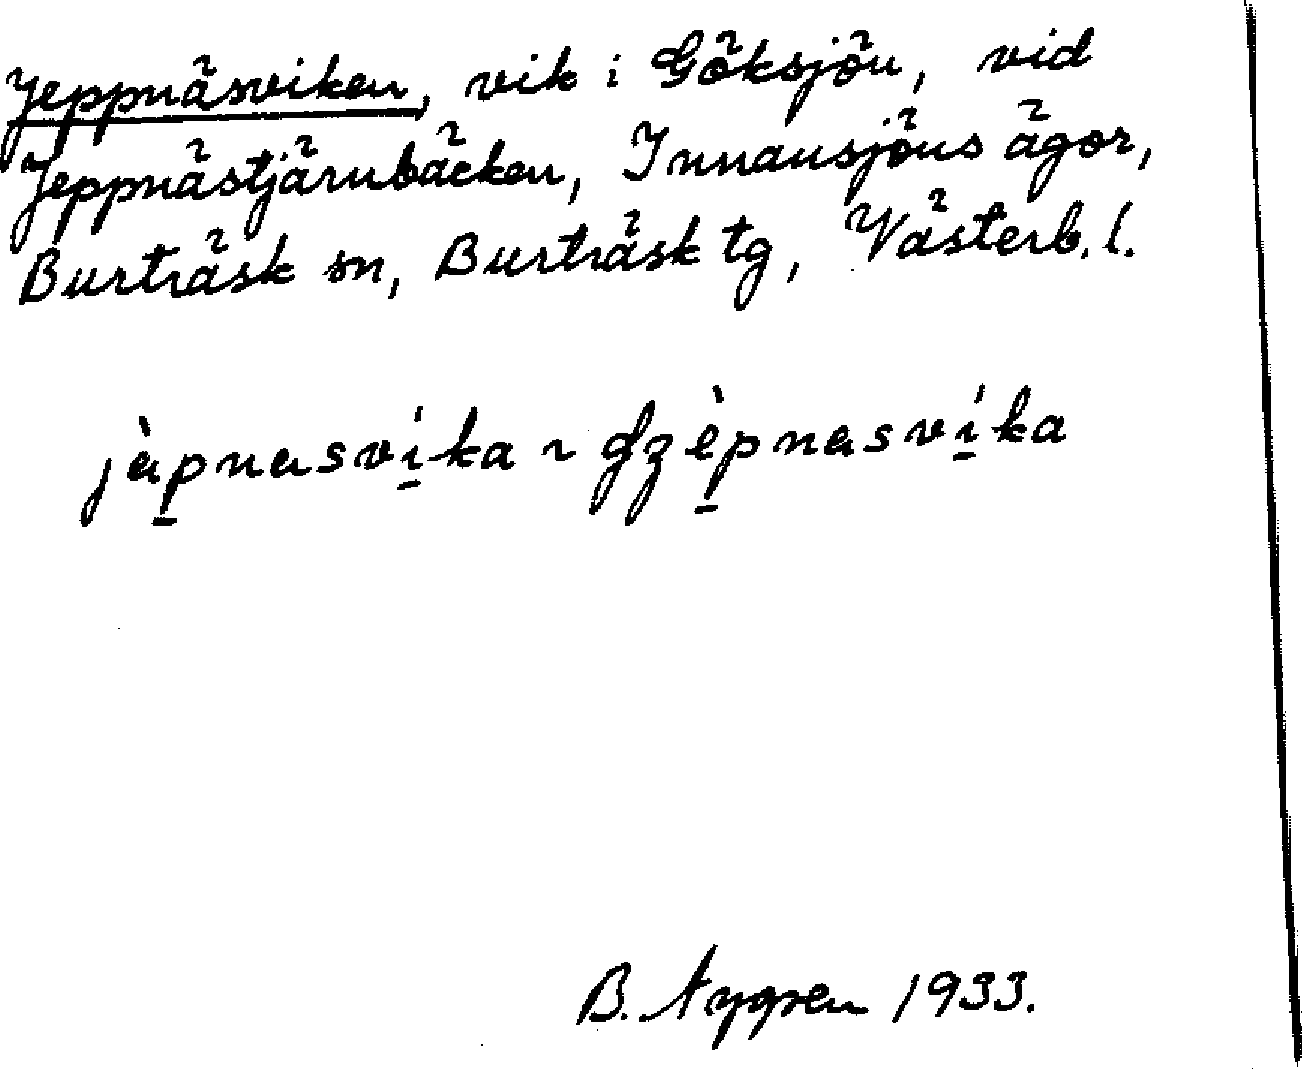 Jeppnäsviken, vik i Göksjön, vid
Jeppnästjärnbäcken, Innansjöns ägor,
Burträsk sn, Burträsk tg, Västerb. l.
jàpnasvíka ~ ɠʒèpnasvíka
B. Nygren 1933.